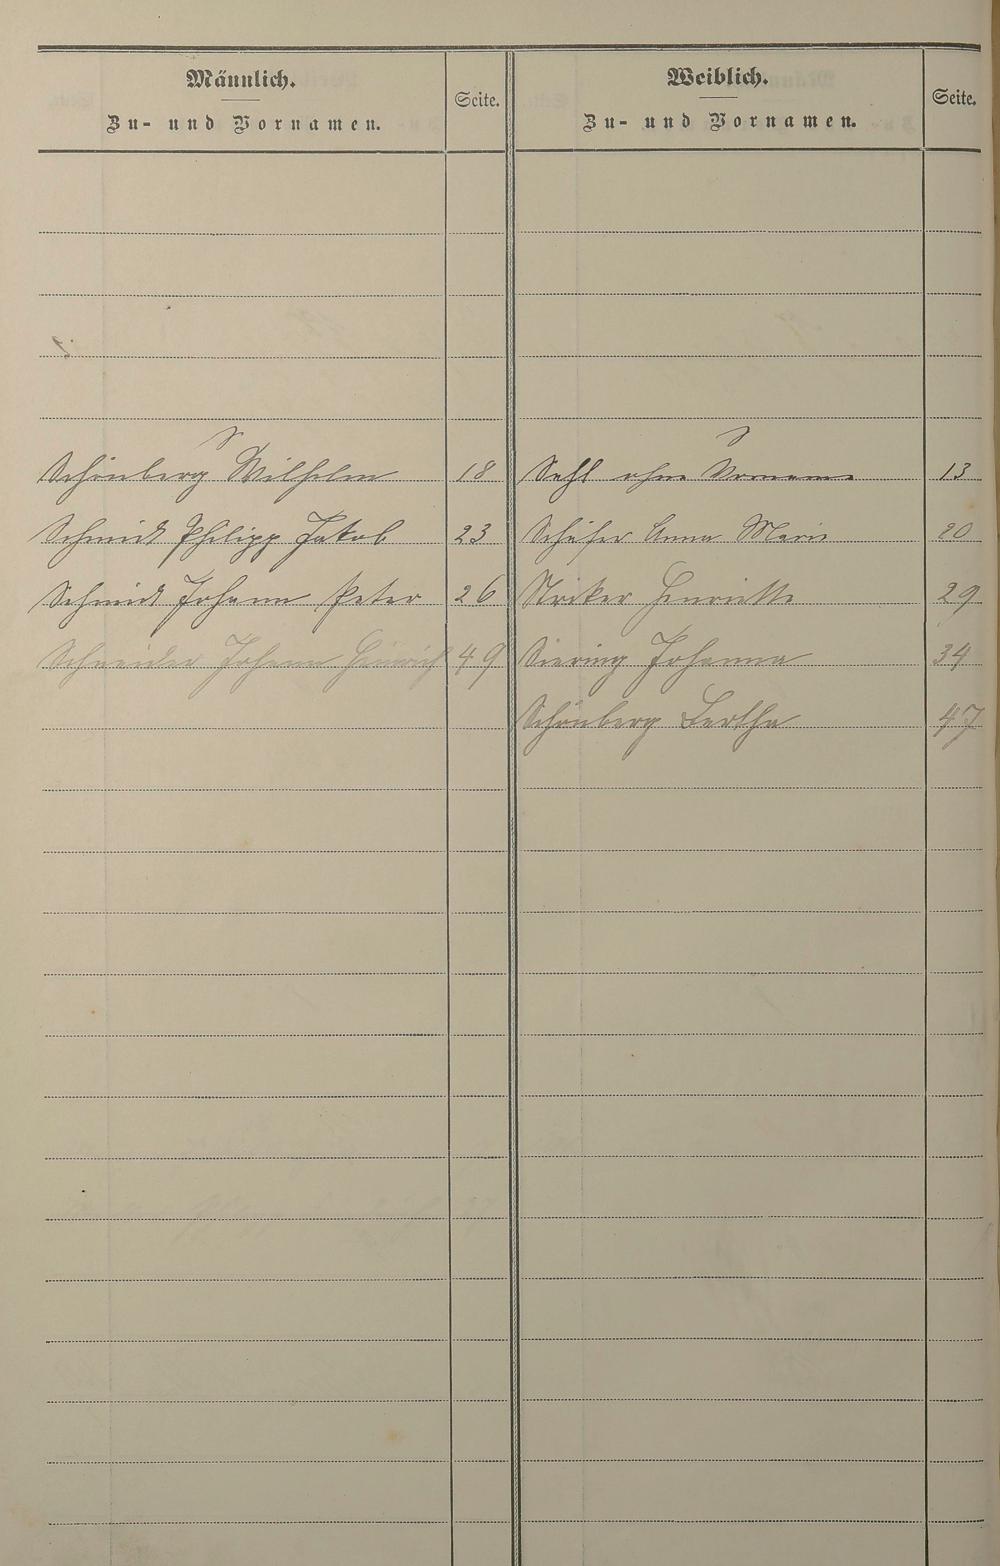 Männlich.
Zu- und Vornamen.
Seite.
Weiblich.
Zu- und Vornamen.
Seite.
S
Schönberg Wilhelm 18
Schmidt Philipp Jakob 23
Schmidt Johann Peter 26
Schneider Johann Heinrich 49
S
Sehl ohne Vorname 13
Schäfer Anna Marie 20
Striker Henriette 29
Siering Johanna 34
Schönberg Bertha 47